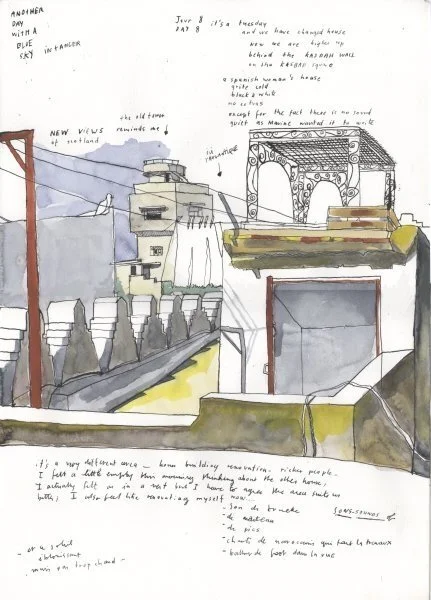 ANOTHER
DAY
WITH A
BLUE
SKY in TANGER
Jour 8
DAY 8
it's a tuesday
and we have changed house
now we are higher up
behind the KASBAH WALL
on the KASBAH square
a spanish woman's house
quite cold
black & white
no extras
except for the fact there is no sound
quiet as Maxine wanted it to write
NEW VIEWS
of scotland
the old tower
reminds me
it's a very different area – home building renovation. richer people –
I felt a little empty this morning thinking about the other house,
I actually felt in a rest but I have to agree the area suits us
better; I also feel like renovating myself now –
SONS-SOUNDS
- son de
- de marteau
- de pics
- chants de marocains qui font la travaux
- ballon de foot dans la rue
- et a soleil
éblouissant
mais pas trop chaud –